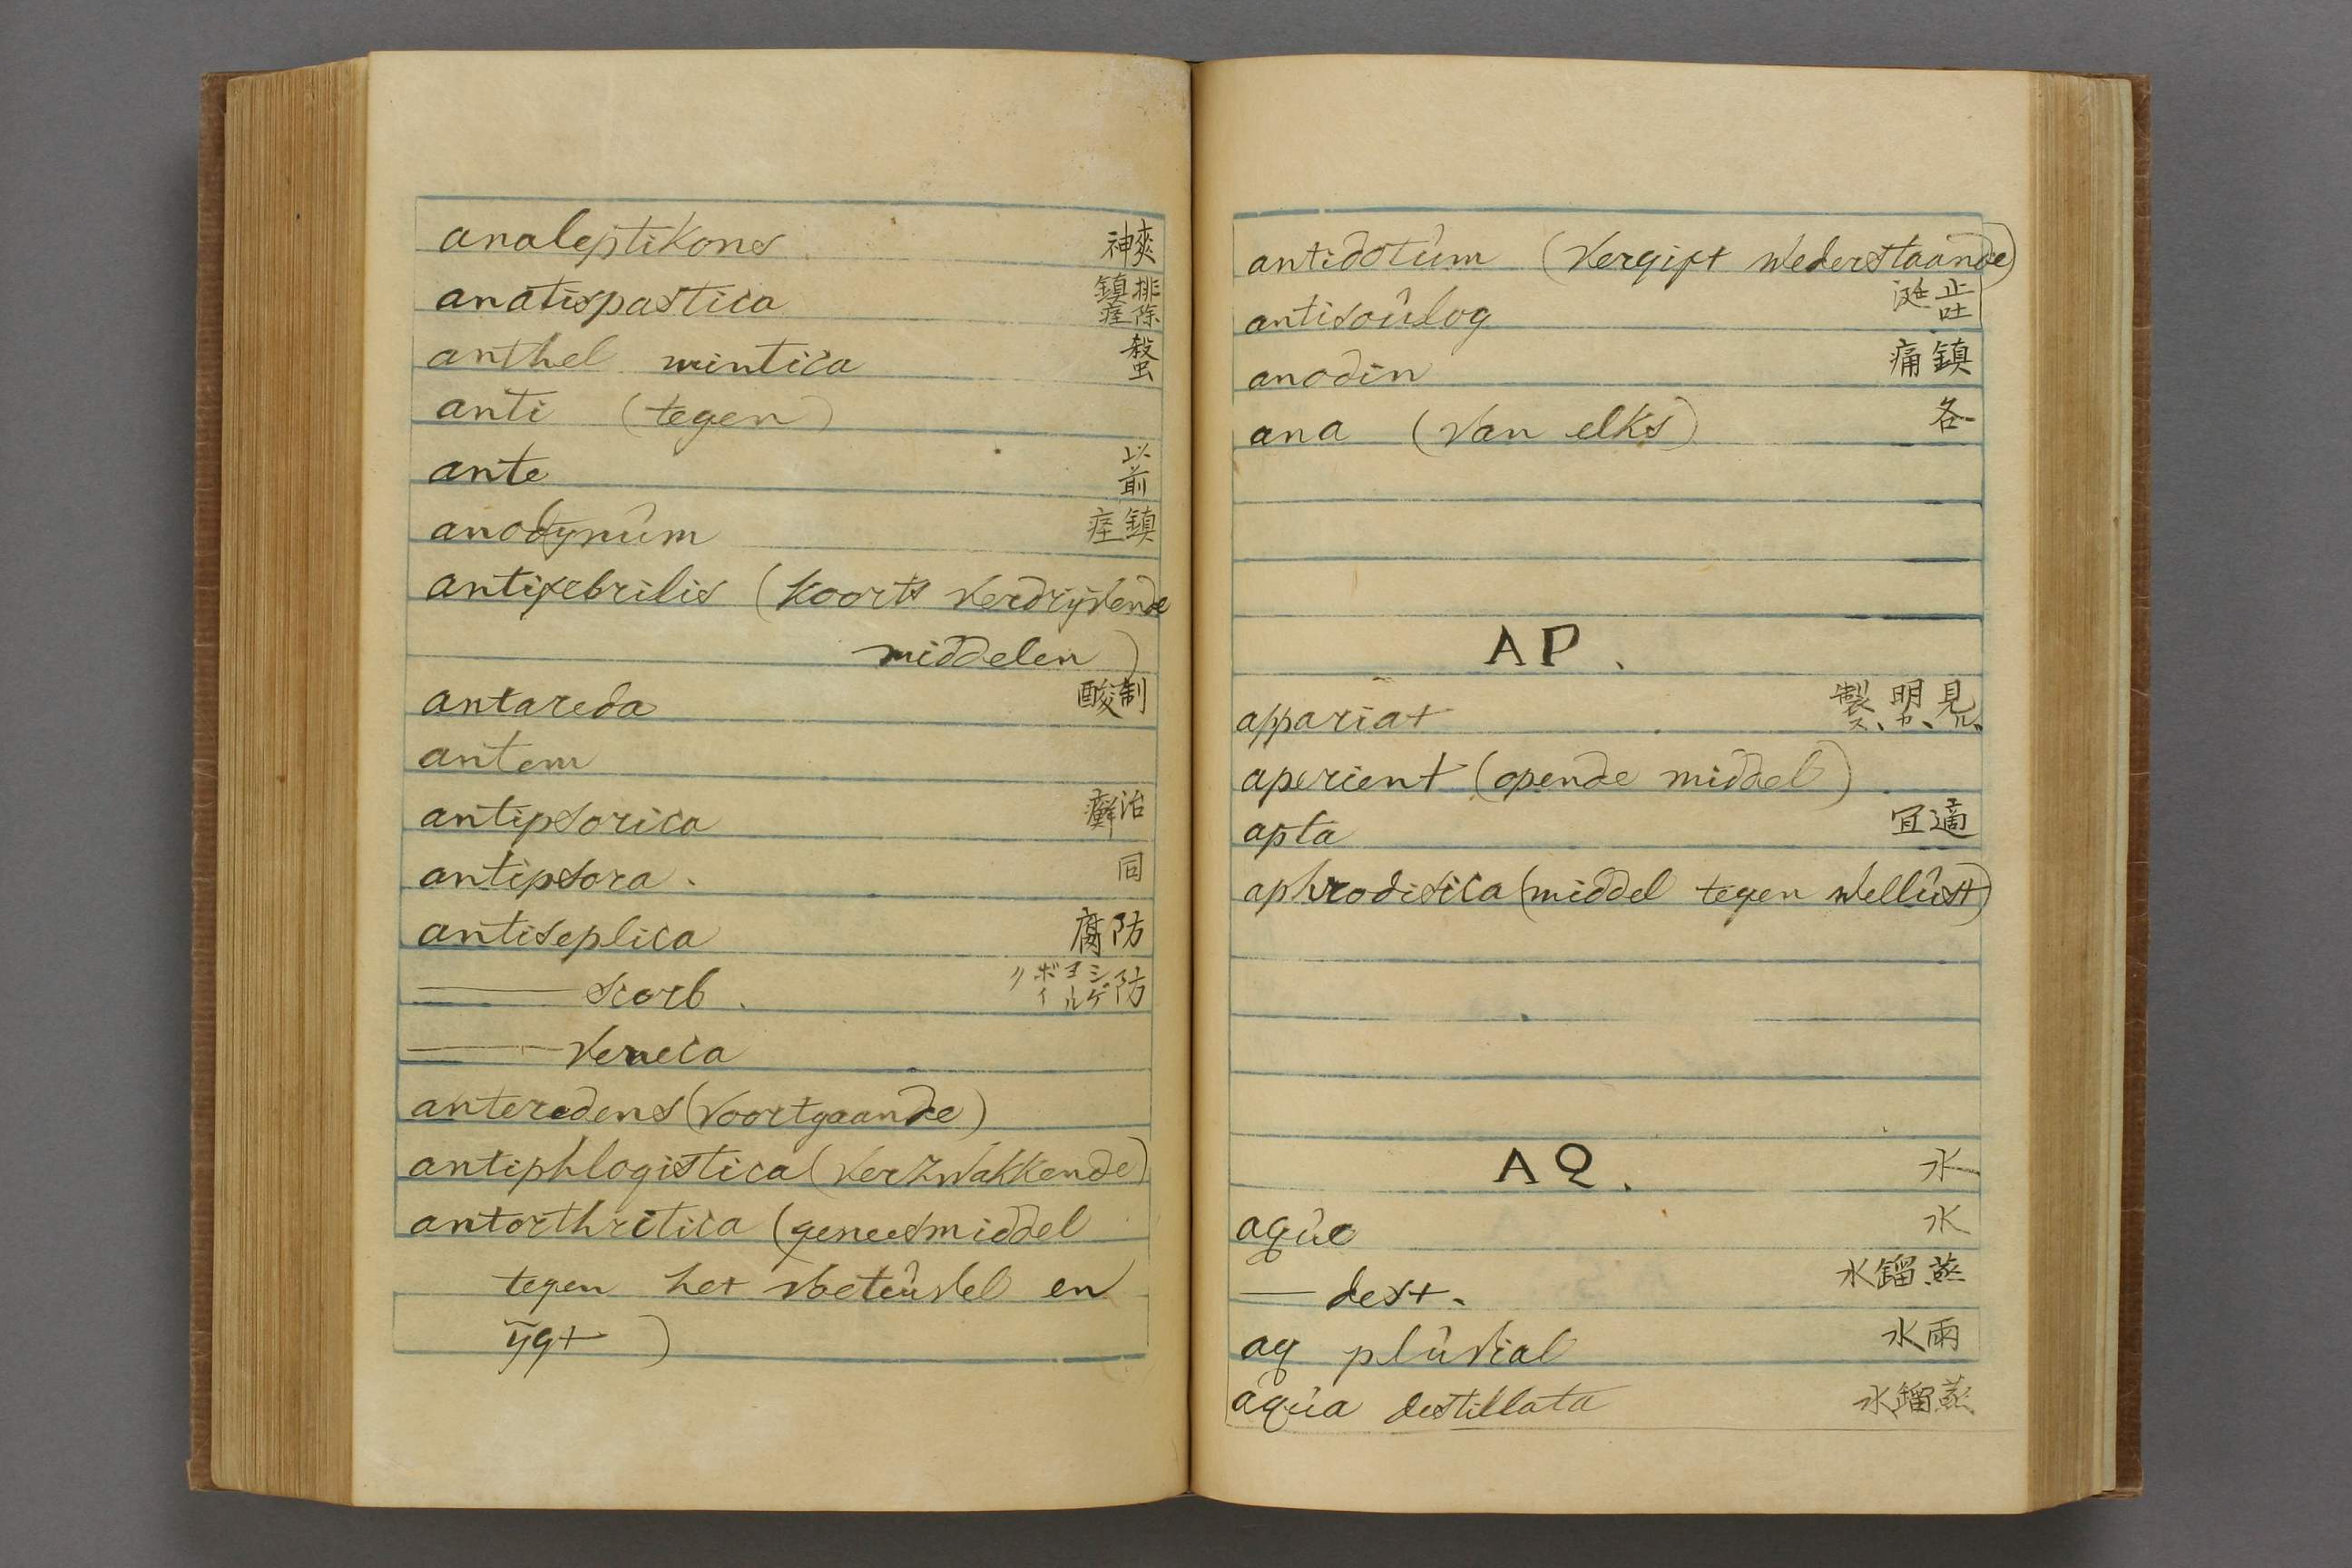 analeptikons 神爽
anatispastica 鎮痙 排除
anthel mintica 殺虫
anti (tegen)
ante 以前
anodynum 痙鎮
antifebrilis (koorts verdrijvende
middelen)
antareda 酸制
antem
antipsorica 癬治
antipsora. 同
antiseplica 腐防
—— scorb. 防
—— veneca
anteredens (voortgaande)
antiphlogistica (verzwakkende)
antorthritica (geneesmiddel
tegen het voeteuvel en
ygt)
antidotum (vergift wederstaande)
antisoulog 止吐
anodin 痛鎮
ana (van elks) 各
AP.
appariat 製ス、明カ、見ル、
aperient (opende middel)
apta 宜適
aphrodisica (middel tegen wellust)
AQ. 水
aque 水
— dest. 水鎦蒸
aq pluvial 水雨
aqua destillata 水鎦蒸